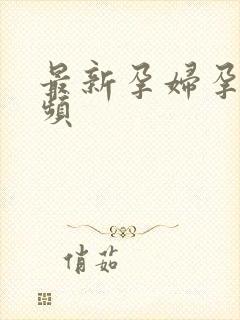 最新孕婦孕
頻
俏茹